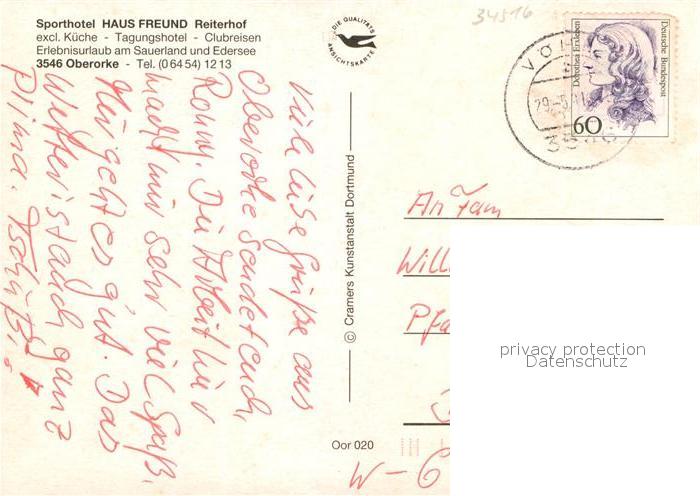 Sporthotel HAUS FREUND Reiterhof
excl. Küche - Tagungshotel - Clubreisen
Erlebnisurlaub am Sauerland und Edersee
3546 Oberorke - Tel. (06454) 1213
DIE QUALITÄTS
ANSICHTSKARTE
34516
Deutsche Bundespost
Dorothea Erxleben
60
VÖH
29.-5.
Viele liebe Grüße aus
Oberorke sendet euch,
Ronny. Die Arbeit hier
macht mir sehr viel Spaß.
Mir geht es gut. Das
Wetter ist auch ganz
prima. Tschüß.
© Cramers Kunstanstalt Dortmund
Oor 020
An Fam
Will
Pfa
W-6
privacy protection
Datenschutz